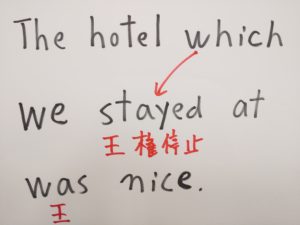 The hotel which
we stayed at
王権停止
was nice.
王